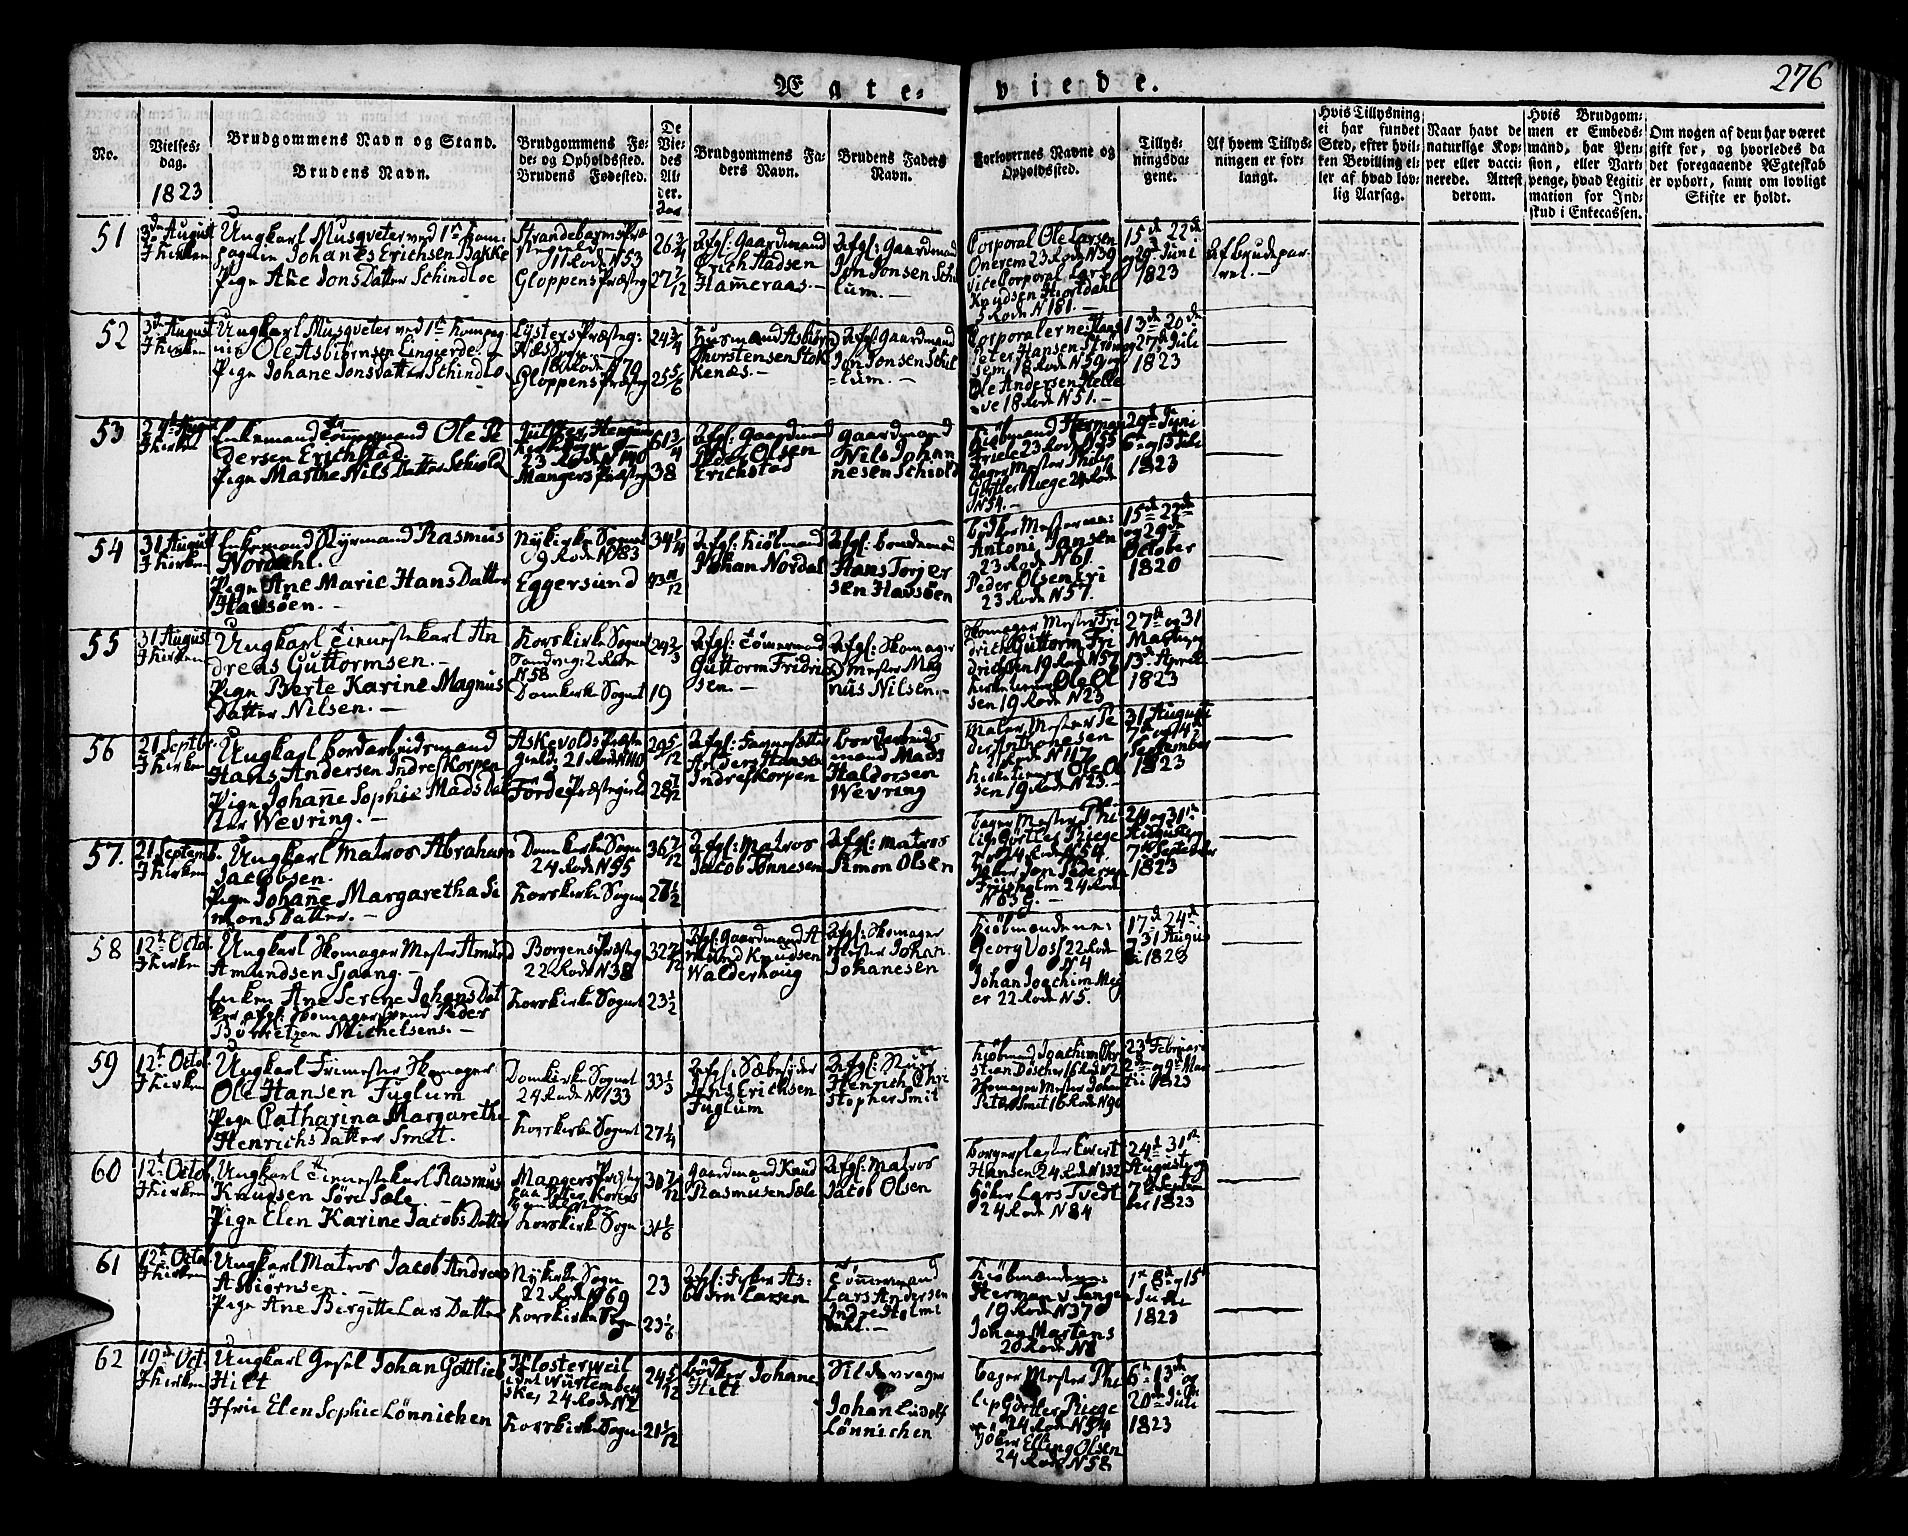 276
Ægte-viede.
No.
Vielses-
dag.
1823
Brudgommens Navn og Stand.
Brudens Navn.
Brudgommens Fø-
de- og Opholdssted.
Brudens Fødested.
De
Vie-
des
Al-
der.
Aar
Brudgommens Fa-
ders Navn.
Brudens Faders
Navn.
Forlovernes Navne og
Opholdssted.
Tillys-
ningsda-
gene.
Af hvem Tillys-
ningen er for-
langt.
Hvis Tillysning
ei har fundet
Sted, efter hvil-
ken Bevilling el-
ler af hvad lov-
lig Aarsag.
Naar havt de
naturlige Kop-
per eller vacci-
nerede. Attest
derom.
Hvis Brudgom-
men er Embeds-
mand, har Pen-
sion, eller Vart-
penge, hvad Legiti-
mation for Ind-
skud i Enkecassen.
Om nogen af dem har været
gift før, og hvorledes da
det foregaaende Ægteskab
er ophørt, samt om lovligt
Skifte er holdt.
51
3de August
I Kirken
Ungkarl Musqveter ved 1ste Kom-
pagnie Johanes Erichsen Bakke
Pige Ane Jons Datter Schindloe
Strandebarms Præ
11 Rode N 53
Gloppens Præsteg
26 3/4
27 7/12
Afgl: Gaardmand
Erich Stadsen
Hameraas.
Afgl: Gaardmand
Jon Jonsen Schil
lum.
Corporal Ole Larsen
Onerem 23 Rode N 39
Vice Corporal Lars
Knudsen Hjortdahl
5 Rode N 181.
15de 22de
og 29de Juni
1823
Af Brudepar-
ret.
52
3de August
I Kirken
Ungkarl Musqveter ved 1ste Kompag
nie Ole Asbiørnsen Lingierde.
Pige Johane Jons Datter Schindlo
Lysters Præsteg:
18 Rode N 79
Gloppens Præsteg
24 3/4
25 5/6
Huusmand Asbiørn
Thorstensen Stok
kenæs.
Afgl: Gaardmand
Jon Jonsen Schil
lum.
Corporalerne: Hans
Peter Hansen Strøm
sem, 18 Rode N 59 og
Ole Andersen Helle
ve 18 Rode N 51.
13de 20de
og 27de Juli
1823
53
24de Augu
I Kirken
Enkemand Tømmermand Ole Pe
dersen Erichstad
Pige Marthe Nils Datter Schiold
23 Rode N 140
Mangers Præsteg
61 3/4
38
Afgl: Gaardmand
Peder Olsen
Erichstad
Gaardmand
Nils Johan
nesen Schiold
Kiøbmand Herman
Friele 23 Rode N 55
Bager Mester Philip
Gørtler Riege 24 Rode
N 54.
29de Juni
6te og 13de Juli
1823
54
31 August
I Kirken
Enkemand Styrmand Rasmus
Nordahl.
Pige Ane Marie Hans Datter
Hausøen.
Nykirke Sogn
9 Rode N 83
Eggersund
34 1/4
43 11/12
Afgl: Kiøbmand
Johan Nordal
Afgl: Bondemand
Hans Torjer
sen Hausøen
Bødker Mesterne:
Antoni Jansen
23 Rode N 61.
Peder Olsen Eri
23 Rode N 57.
15de 22de
og 29de
October
1820
55
31 August
I Kirken
Ungkarl Tienestekarl An
dreas Guttormsen.
Pige Berte Karine Magnus
Datter Nilsen.
Korskirke Sogn
Sandvig: 2 Rode
N 58
Domkirke Sogn
24 2/3
19
Afgl: Tømmermand
Guttorm Fridrich
sen.
Afgl: Skomager
Mester Mag
nus Nilsen.
Skomager Mester Fri
drich Guttorm Fri
drichsen 19 Rode N 57
Kirketiener Ole Ol
sen 19 Rode N 23
27de og 31
Marti og
13de April
1823
56
21 Septbr.
I Kirken
Ungkarl Bordarbeidsmand
Hans Andersen Indreskorpen
Pige Johanne Sophie Mads Dat
ter Wevring.
Askevolds Præste
gield, 21 Rode N 110
Førde Præstegield
29 5/12
28 7/12
Anders Hansen
Indreskorpen
Bordarbeids
mand Mads
Haldorsen
Wevring
Maler Mester Pe
der Anthonesen
21 Rode N 117
Kirketiener Ole Ol
sen 19 Rode N 23.
31 August
7de og 14de
September
1823
57.
21 Septemb.
I Kirken
Ungkarl Matros Abraham
Jacobsen.
Pige Johanne Margaretha Si
mons Datter.
Domkirke Sogn
24 Rode N 95
Korskirke Sogn
36 7/12
27 1/2
Afgl: Matros
Jacob Tønnesen
Afgl: Matros
Simon Olsen
Bager Mester Phi
lip Gørtler Riege
24 Rode N 54.
Høker Jon Pedersen
Friisholm 24 Rode
N 63 g.
24 og 31te
August og
7de September
1823
58
12te Octo.
I Kirken
Ungkarl Skomager Mester Amund
Amundsen Sjaang.
Enken Ane Serene Johans Dat
ter afgl: Skomagersvend Peder
Børretzen Michelsens.
Borgens Præsteg
22 Rode N 38
Korskirke Sogn
32 7/12
23 1/2
Afgl: Gaardmand A
mund Knudsen
Walderhoug
Afgl: Skomager
Mester Johan
Johanesen
Kiøbmændene:
Georg Voss 22 Rode
N 4
Johan Joachim Mey
er 22 Rode N 5.
17de 24de
31 Augus
ti 1823
59
12te Octo.
I Kirken
Ungkarl Frimester Skomager
Ole Hansen Fuglum
Pige Catharina Margarethe
Henrichs Datter Smit.
Domkirke Sogn
24 Rode N 133
Korskirke Sogn
33 1/3
27 1/4
Afgl: Sæbesyder
Hans Erichsen
Fuglum
Henrich Chri
stopher Smit
Kiøbmand Joachim Chr
stian Døscher 16 Rode N 2
Skomager Mester Johan
Peter Smit 16 Rode N 90
23de Februari
2den og 9de Mar
tii 1823
60
12te Octob
I Kirken
Ungkarl Tienestekarl Rasmus
Knudsen Søre Sæle.
Pige Elen Karine Jacobs Datter
Mangers Præsteg
Korskirke Sogn
30 7/12
31 1/6
Gaardmand Knud
Rasmusen Sæle
Afgl: Matros
Jacob Olsen
Borgerplagter Evert
Hansen 24 Rode N 132
Høker Lars Tvedt
24 Rode N 84
24de 31te
August og
7de Septem
ber 1823
61
12te Octob.
I Kirken
Ungkarl Matros Jacob Andreas
Asbiørnsen.
Pige Ane Birgitte Lars Datter
Nykirke Sogn
22 Rode N 69
Korskirke Sogn
23
23 1/6
Afgl: Fisker As-
biørn Larsen
Tømmermand
Lars Andersen
Indre Holme
dahl.
Kiøbmændene:
Herman v Tangen
19 Rode N 370
Johan Martens
20 Rode N 8
1te 8de og 15de
Juni
1823
62
19de Oct.
I Kirken
Ungkarl Gesel Johan Gottlieb
Hilt
Pige Elen Sophie Lønnichen
Klosterweil
i det Würtemberg
ske, 24 Rode N 2
Korskirke Sogn
24 5/12
21 1/12
Bødker Johane
Hilt
Sildevrager
Johan Ludolf
Lønnichen
Bager Mester Phi
lip Gørtler Riege
24 Rode N 54
Høker Elling Olsen
24 Rode N 58
6te 13de og
20de Juli
1823